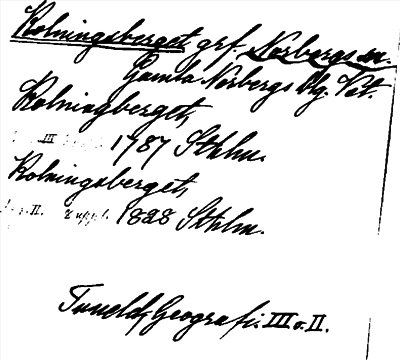 Kolningsberget, grf. Norbergs sn.
Gamla Norbergs blg. Vst.
Kolningberget,
III 1787 Sthlm.
Kolningsberget,
II. uppl. 1828 Sthlm.
Tunelds Geografi. III o. II.